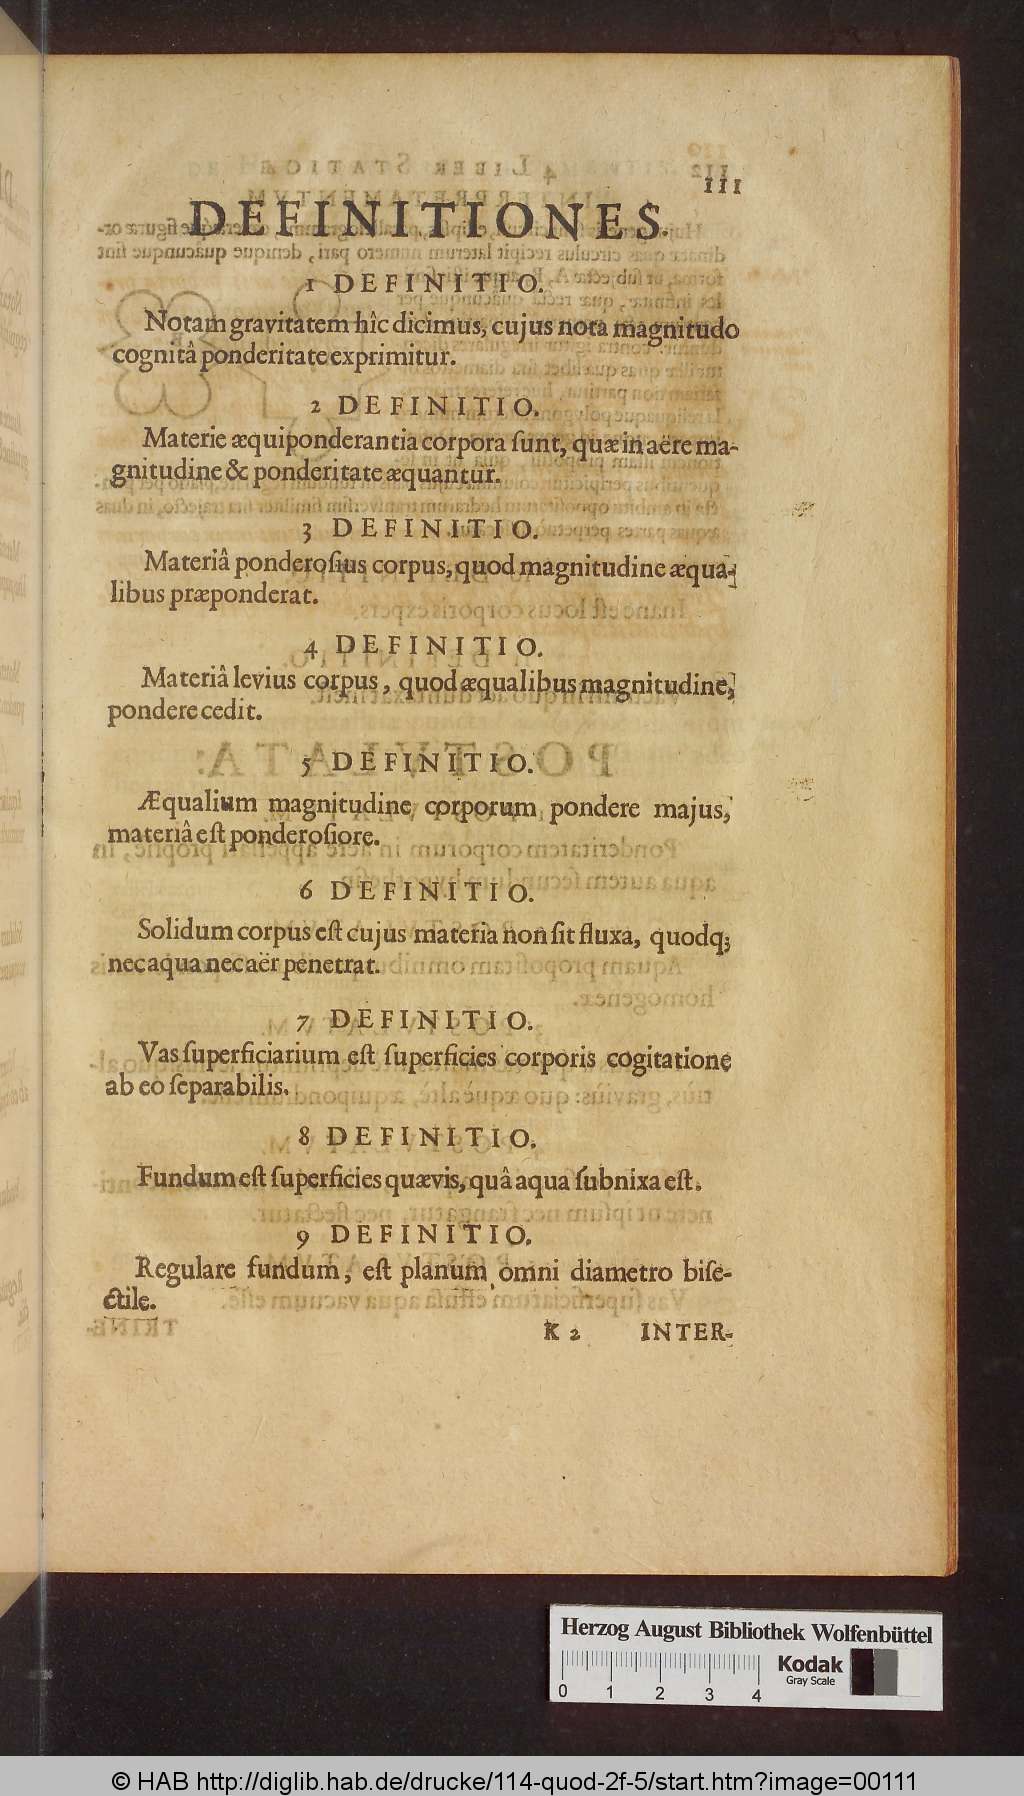 111
DEFINITIONES.
1 DEFINITIO.
Notam gravitatem hîc dicimus, cujus nota magnitudo
cognitâ ponderitate exprimitur.
2 DEFINITIO.
Materie æquiponderantia corpora ſunt, quæ in aëre ma-
gnitudine & ponderitate æquantur.
3 DEFINITIO.
Materiâ ponderoſius corpus, quod magnitudine æqua-
libus præponderat.
4 DEFINITIO.
Materiâ levius corpus, quod æqualibus magnitudine,
pondere cedit.
5 DEFINITIO.
Æqualium magnitudine corporum pondere majus,
materiâ eſt ponderoſiore.
6 DEFINITIO.
Solidum corpus eſt cujus materia non ſit fluxa, quodq;
nec aqua nec aër penetrat.
7 DEFINITIO.
Vas ſuperficiarium eſt ſuperficies corporis cogitatione
ab eo ſeparabilis.
8 DEFINITIO.
Fundum eſt ſuperficies quævis, quâ aqua ſubnixa eſt.
9 DEFINITIO.
Regulare fundum, eſt planum omni diametro biſe-
ctile.
K 2 INTER-
Herzog August Bibliothek Wolfenbüttel
Kodak
Gray Scale
0 1 2 3 4
© HAB http://diglib.hab.de/drucke/114-quod-2f-5/start.htm?image=00111